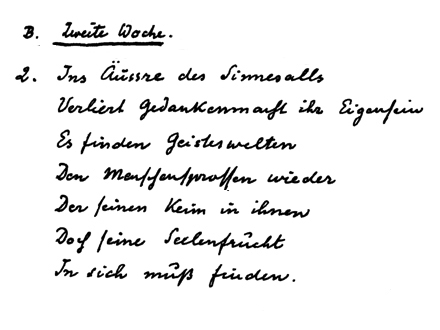 B. Zweite Woche.
2. Ins Äussre des Sinnesalls
Verliert Gedankenmacht ihr Eigensein
Es finden Geisteswelten
Den Menschensprossen wieder
Der seinen Keim in ihnen
Doch seine Seelenfrucht
In sich muß finden.